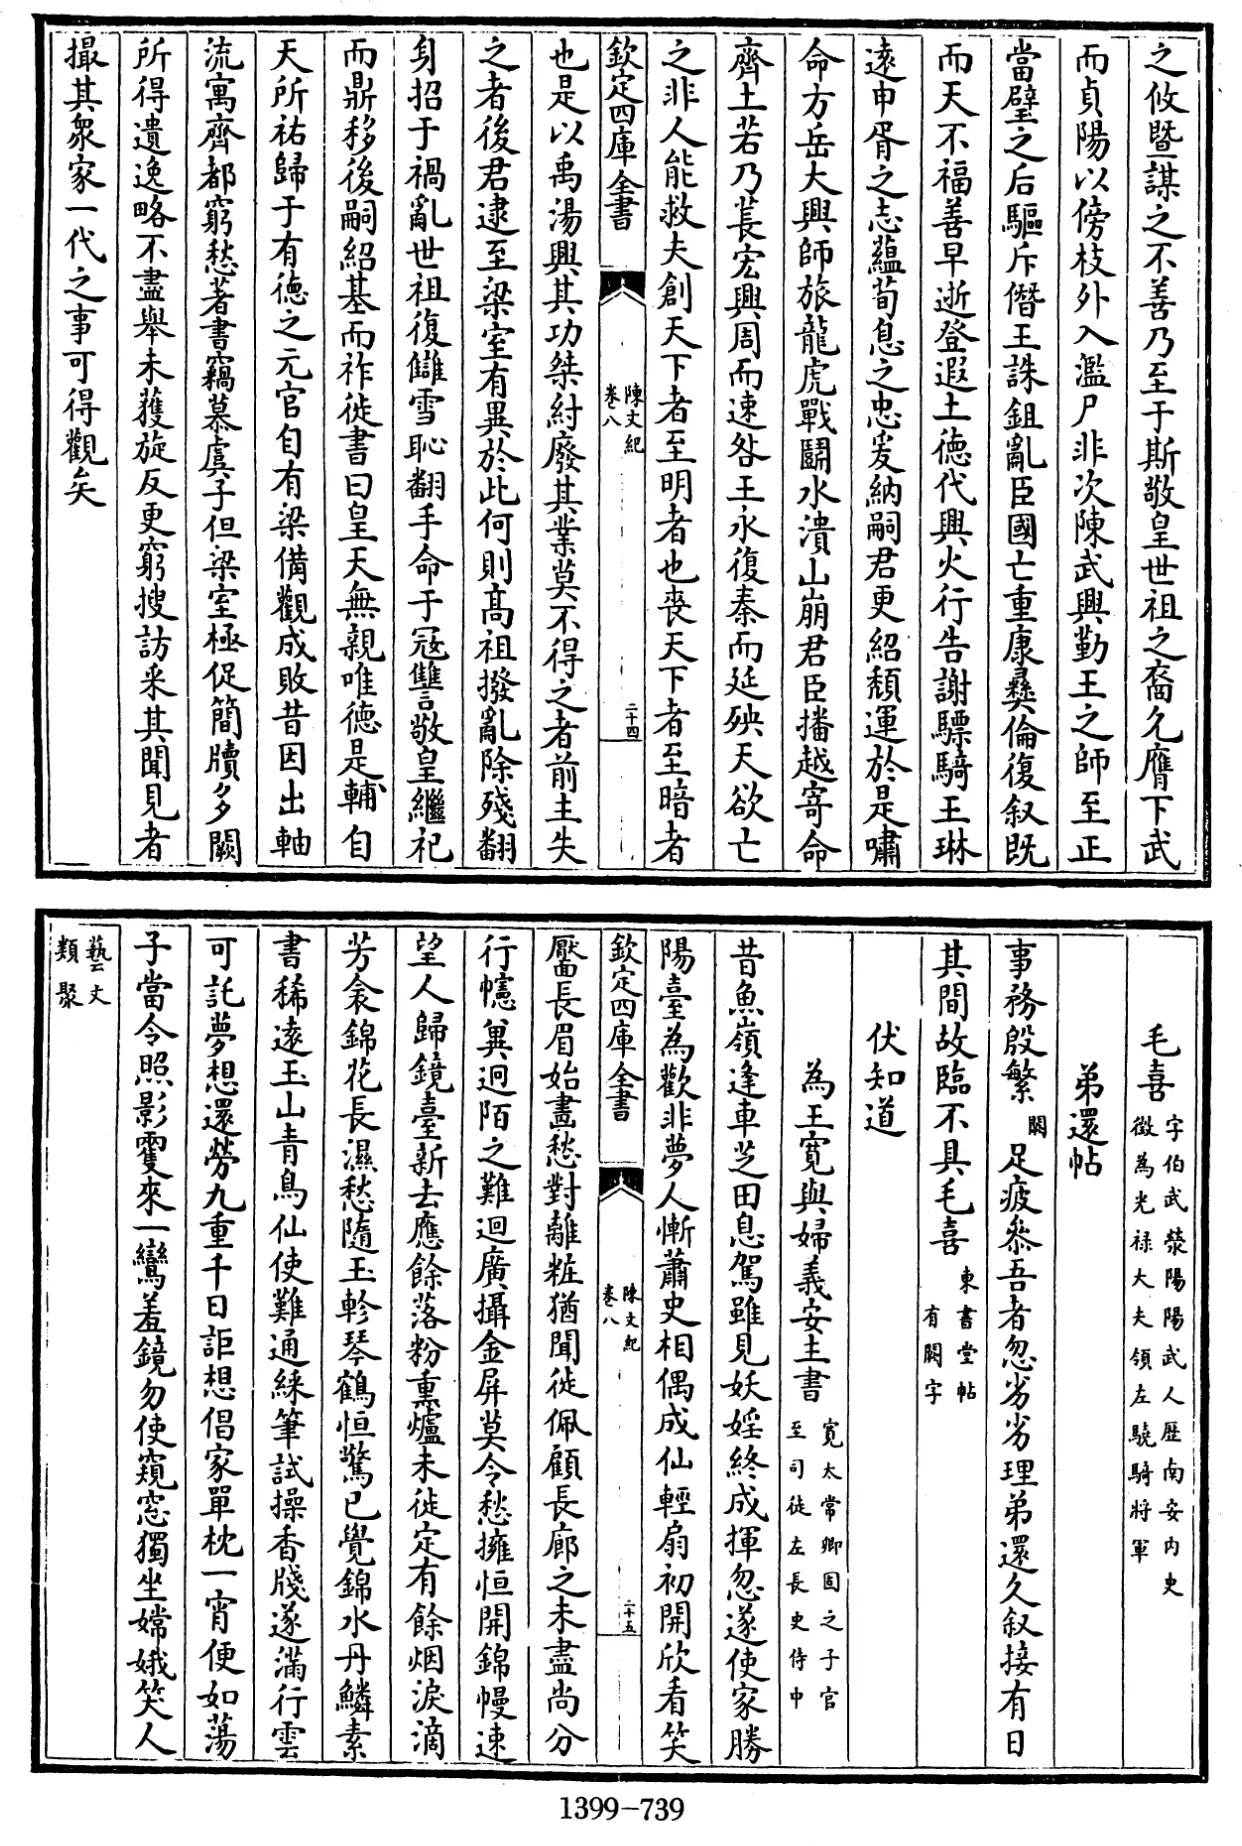 之攸暨謀之不善乃至于斯敬皇世祖之裔允膺下武
而貞陽以傍枝外入濫尸非次陳武興勤王之師至正
當璧之后驅斥僭王誅鉏亂臣國亡重康彝倫復叙既
而天不福善早逝登遐土德代興火行告謝驃騎王琳
遠申胥之志蘊荀息之忠爰納嗣君更紹頹運於是嘯
命方岳大興師旅龍虎戰鬬水潰山崩君臣播越寄命
齊土若乃萇宏興周而速咎王永復秦而延殃天欲亡
之非人能救夫創天下者至明者也喪天下者至暗者
欽定四庫全書
陳文紀
卷八
二十四
也是以禹湯興其功桀紂廢其業莫不得之者前主失
之者後君逮至梁室有異於此何則髙祖撥亂除殘翻
身招于禍亂世祖復讎雪恥翻手命于冦讐敬皇繼祀
而鼎移後嗣紹基而祚徙書曰皇天無親唯德是輔自
天所祐歸于有德之元官自有梁備觀成敗昔因出軸
流寓齊都窮愁著書竊慕虞子但梁室極促簡牘多闕
所得遺逸略不盡舉未獲旋反更窮搜訪采其聞見者
撮其衆家一代之事可得觀矣
毛喜
字伯武滎陽陽武人歴南安内史
徵為光禄大夫領左驍騎將軍
弟還帖
事務殷繁闕足疲叅吾者忽劣劣理弟還久叙接有日
其間故臨不具毛喜東書堂帖
有闕字
伏知道
為王寛與婦義安主書
寛太常卿固之子官
至司徒左長史侍中
昔魚嶺逢車芝田息駕雖見妖婬終成揮忽遂使家勝
陽臺為歡非夢人慚蕭史相偶成仙輕扇初開欣看笑
欽定四庫全書
陳文紀
卷八
二十五
靨長眉始畫愁對離粧猶聞徙佩顧長廊之未盡尚分
行幰兾迥陌之難迴廣攝金屏莫令愁擁恒開錦幔速
望人歸鏡臺新去應餘落粉熏爐未徙定有餘烟淚滴
芳衾錦花長濕愁隨玉軫琴鶴恒驚已覺錦水丹鱗素
書稀遠玉山青鳥仙使難通綵筆試操香牋遂滿行雲
可託夢想還勞九重千日詎想倡家單枕一宵便如蕩
子當令照影雙來一鸞羞鏡勿使窺窓獨坐嫦娥笑人
藝文
類聚
1399-739